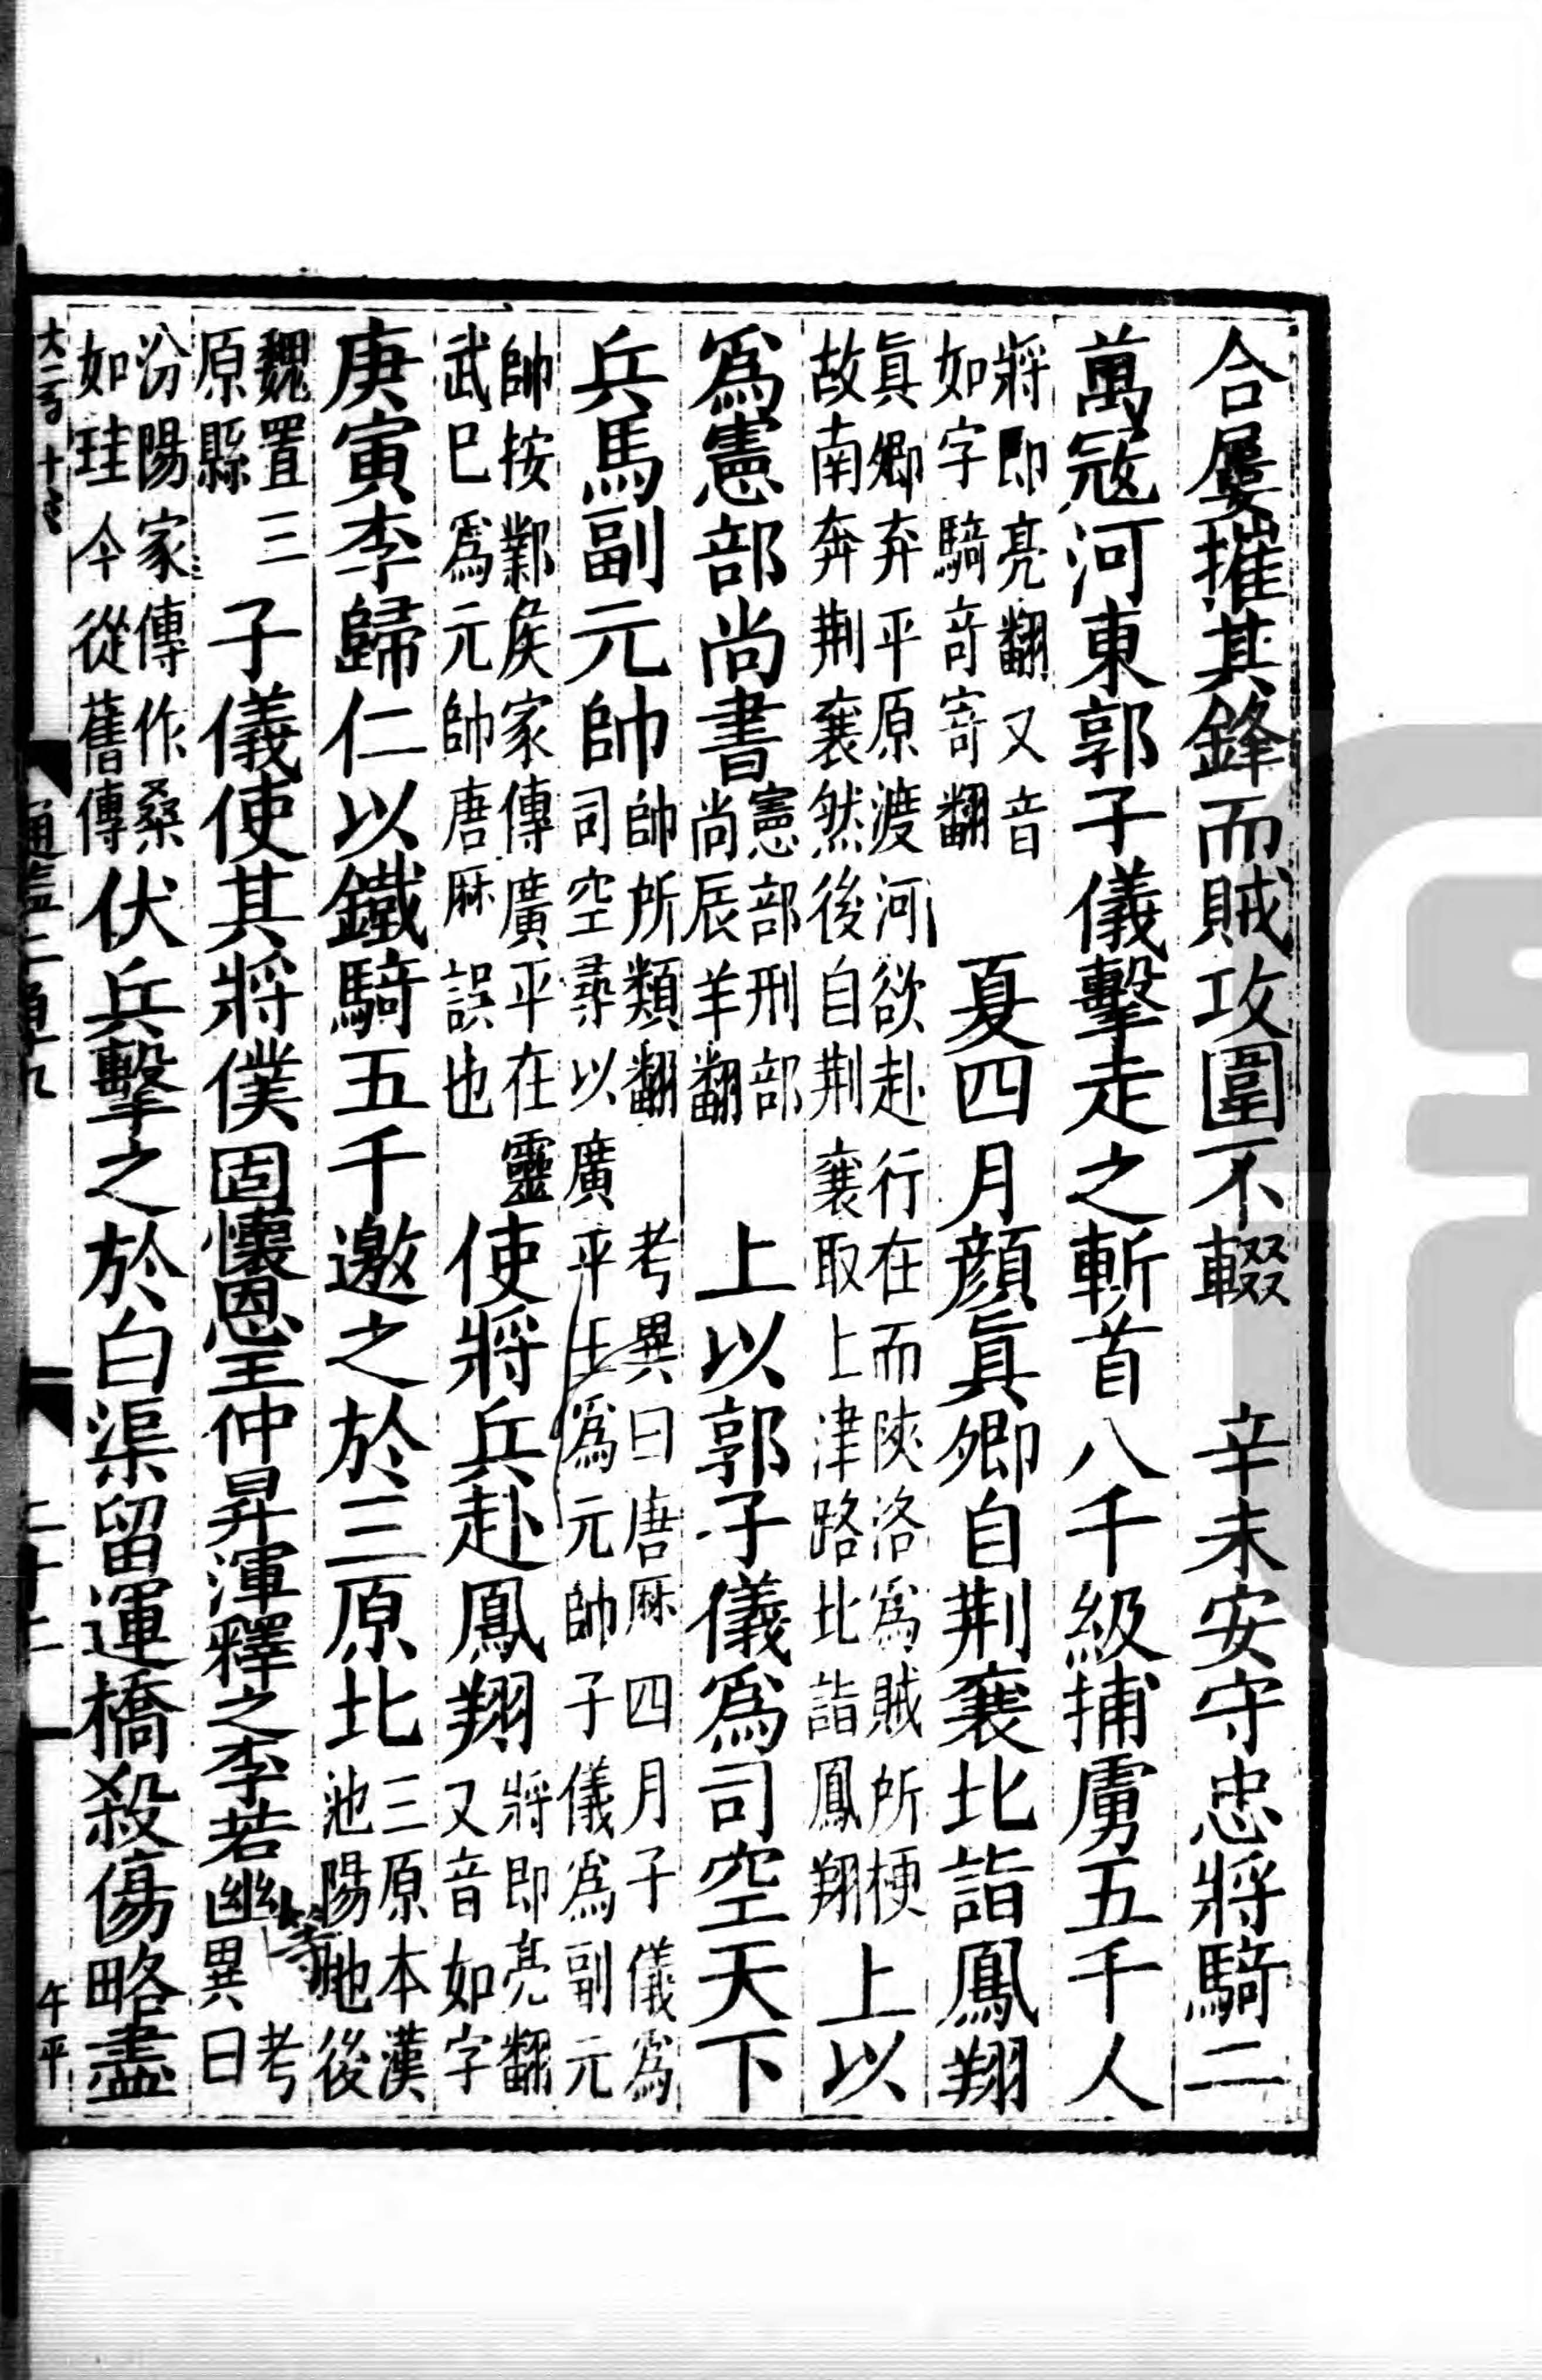 合屢摧其鋒而賊攻圍不輟　辛未安守忠將騎二
萬寇河東郭子儀擊走之斬首八千級捕虜五千人
將即亮翻又音
如字騎竒寄翻
夏四月顔眞卿自荆襄北詣鳳翔
眞卿弃平原渡河欲赴行在而陝洛爲賊所梗
故南奔荆襄然後自荆襄取上津路北詣鳳翔
上以
爲憲部尚書
憲部刑部
尚辰羊翻
上以郭子儀爲司空天下
兵馬副元帥
帥所類翻　考異曰唐厤四月子儀爲
司空尋以廣平王爲元帥子儀爲副元
帥按鄴矦家傳廣平在靈
武巳爲元帥唐厤誤也
使將兵赴鳳翔
將即亮翻
又音如字
庚寅李歸仁以鐵騎五千邀之於三原北
三原本漢
池陽地後
魏置三
原縣
子儀使其將僕固懷恩王仲昇渾釋之李若幽等
考
異曰
汾陽家傳作桑
如珪今從舊傳
伏兵擊之於白渠留運橋殺傷略盡
通鑑二百十九
二十二
午平